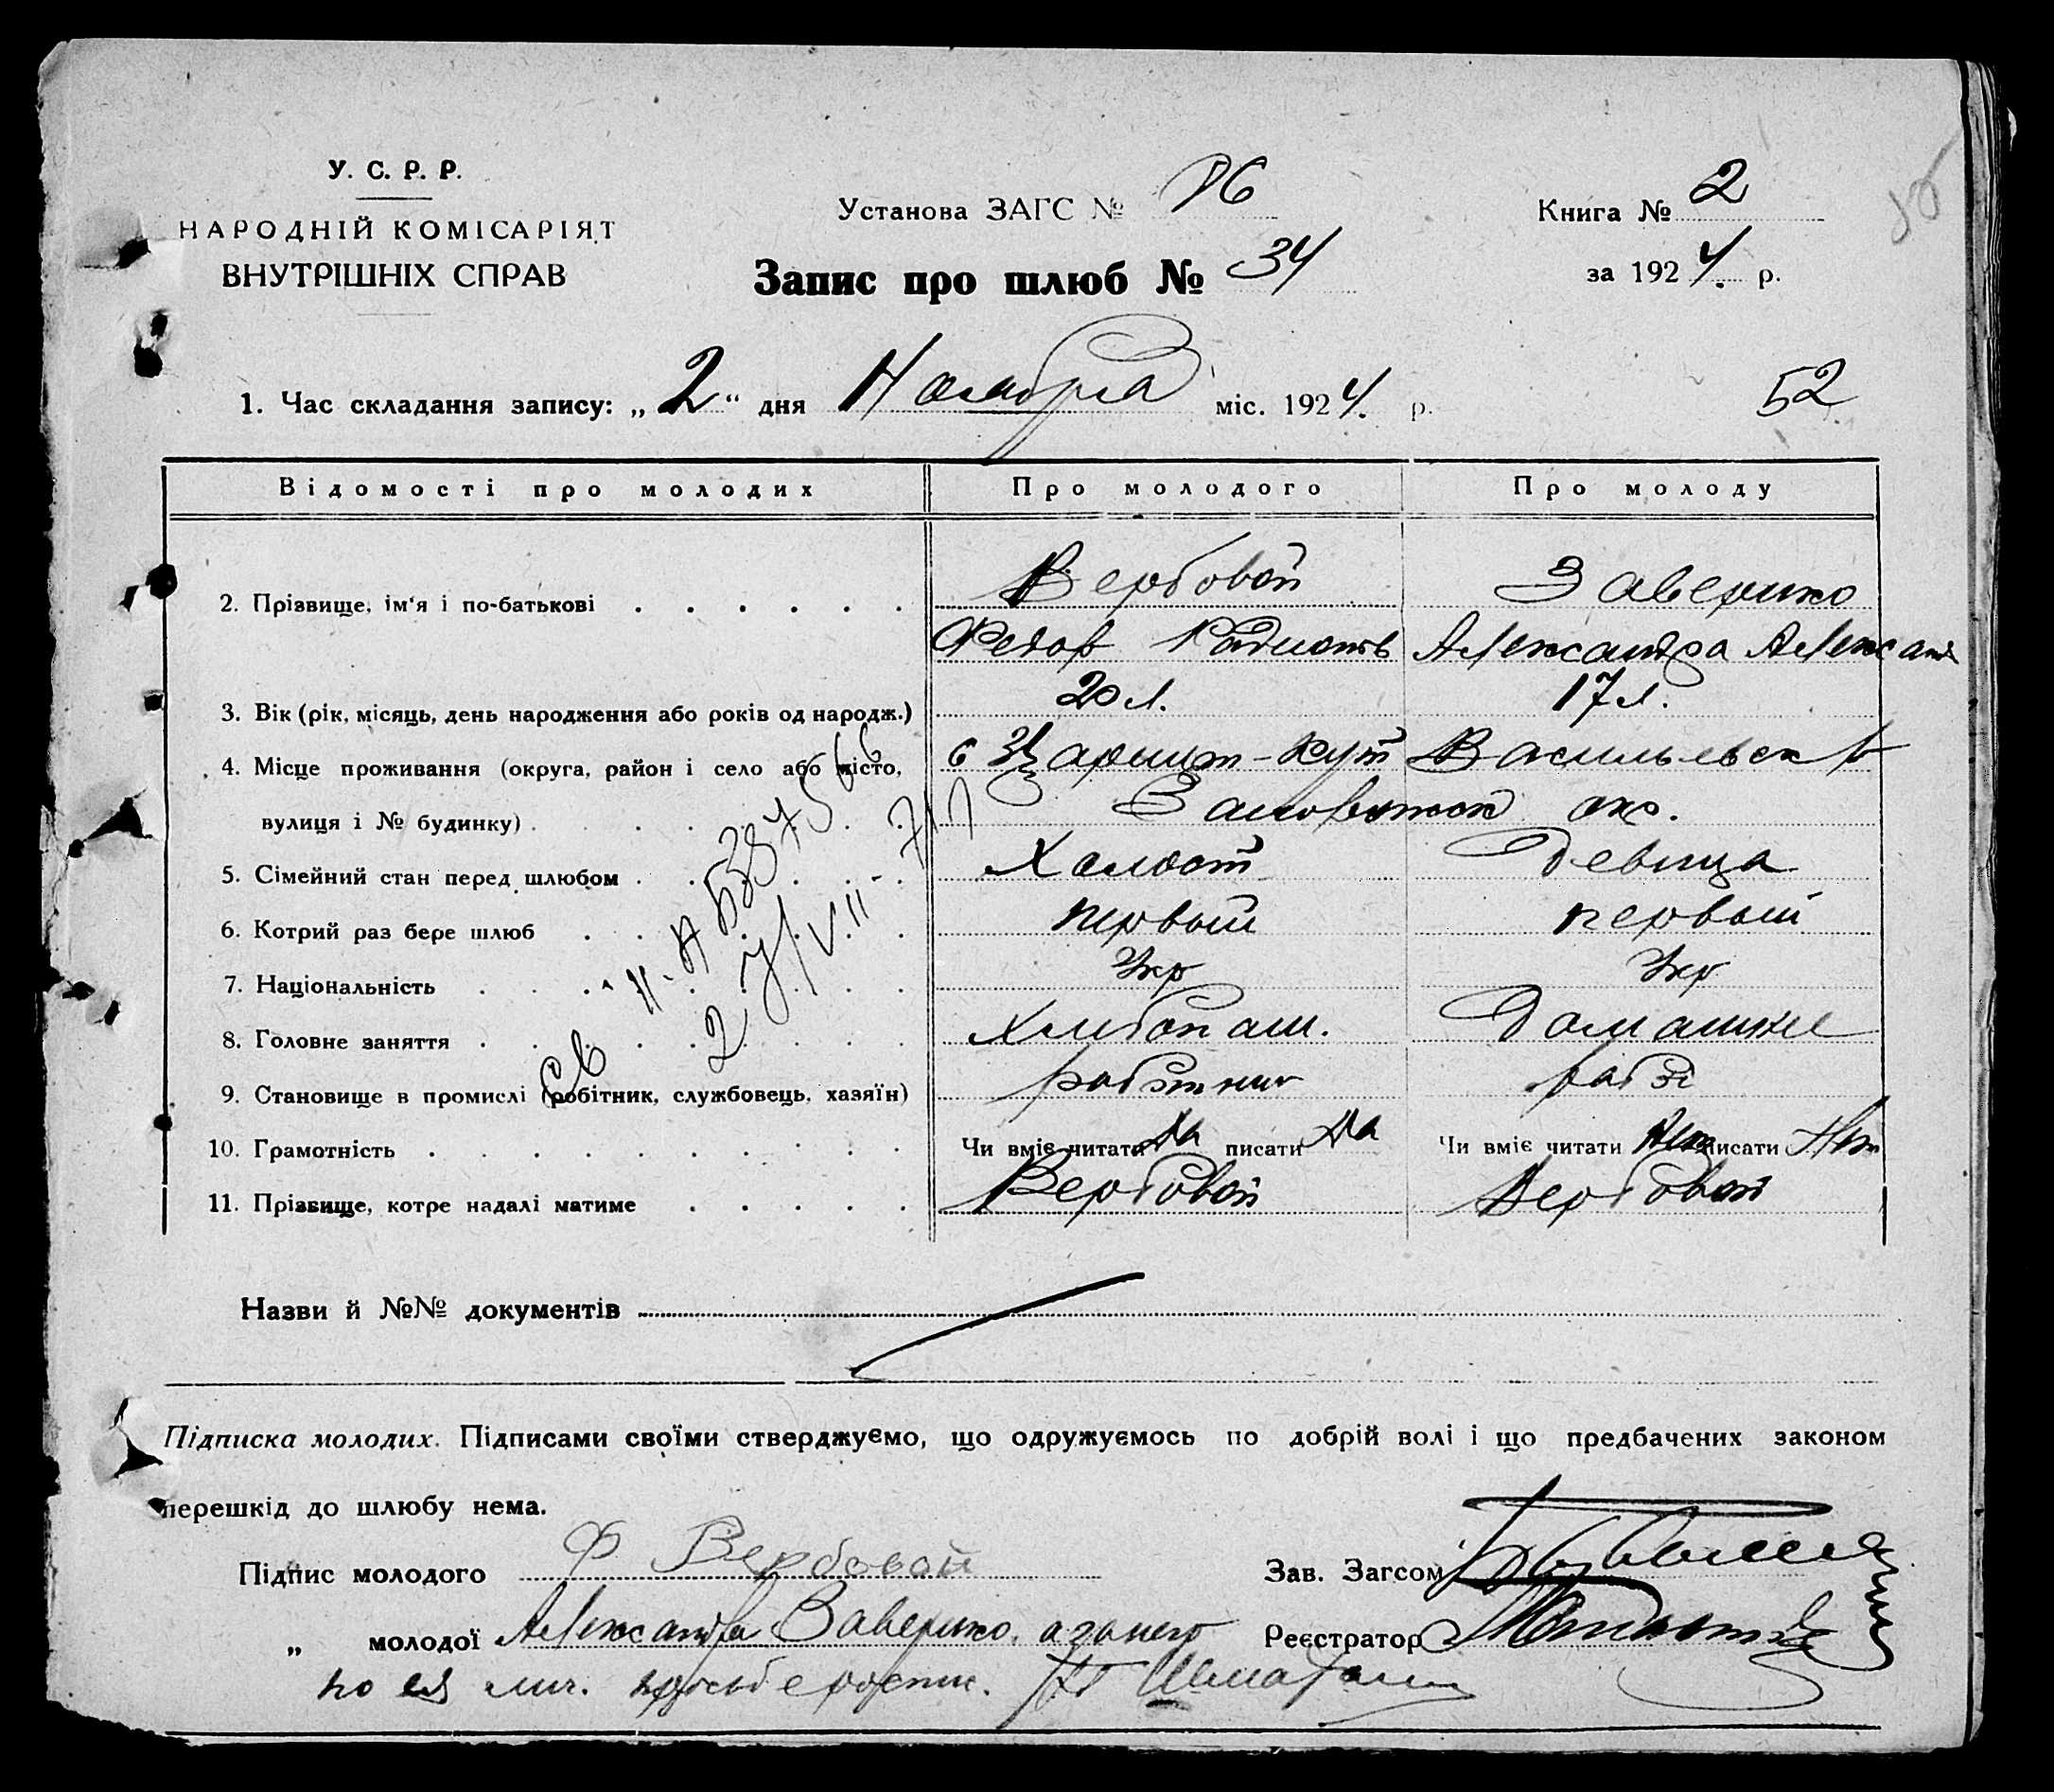 У. С. Р. Р.
НАРОДНІЙ КОМІСАРІЯТ
ВНУТРІШНІХ СПРАВ
Установа ЗАГС №
Запис про шлюб № 34
Книга № 2
за 1924. р.
1. Час складання запису: „2“ дня Ноября міс. 1924. р.
52
Відомості про молодих Про молодого Про молоду
2. Прізвище, ім'я і по-батькові Вербовой
Федор Родионов Александра Алексан
3. Вік (рік, місяць, день народження або років од народж.) 20 л. 17 л.
4. Місце проживання (округа, район і село або місто, Кут Васильевск
вулиця і № будинку) окр.
5. Сімейний стан перед шлюбом Холост Девица
6. Котрий раз бере шлюб первый первый
7. Національність Укр Укр
8. Головне заняття Хлибопаш. Домашне
9. Становище в промислі (робітник, службовець, хазяїн)
10. Грамотність Чи вміє читати Да писати Да Чи вміє читати Нет писати Нет
11. Прізвище, котре надалі матиме Вербовой Вербовой
Назви й №№ документів
Підписка молодих. Підписами своїми стверджуємо, що одружуємось по добрій волі і що предбачених законом
перешкід до шлюбу нема.
Підпис молодого Ф Вербовой Зав. Загсом
„ молодої Александра Реєстратор
по ея лич.